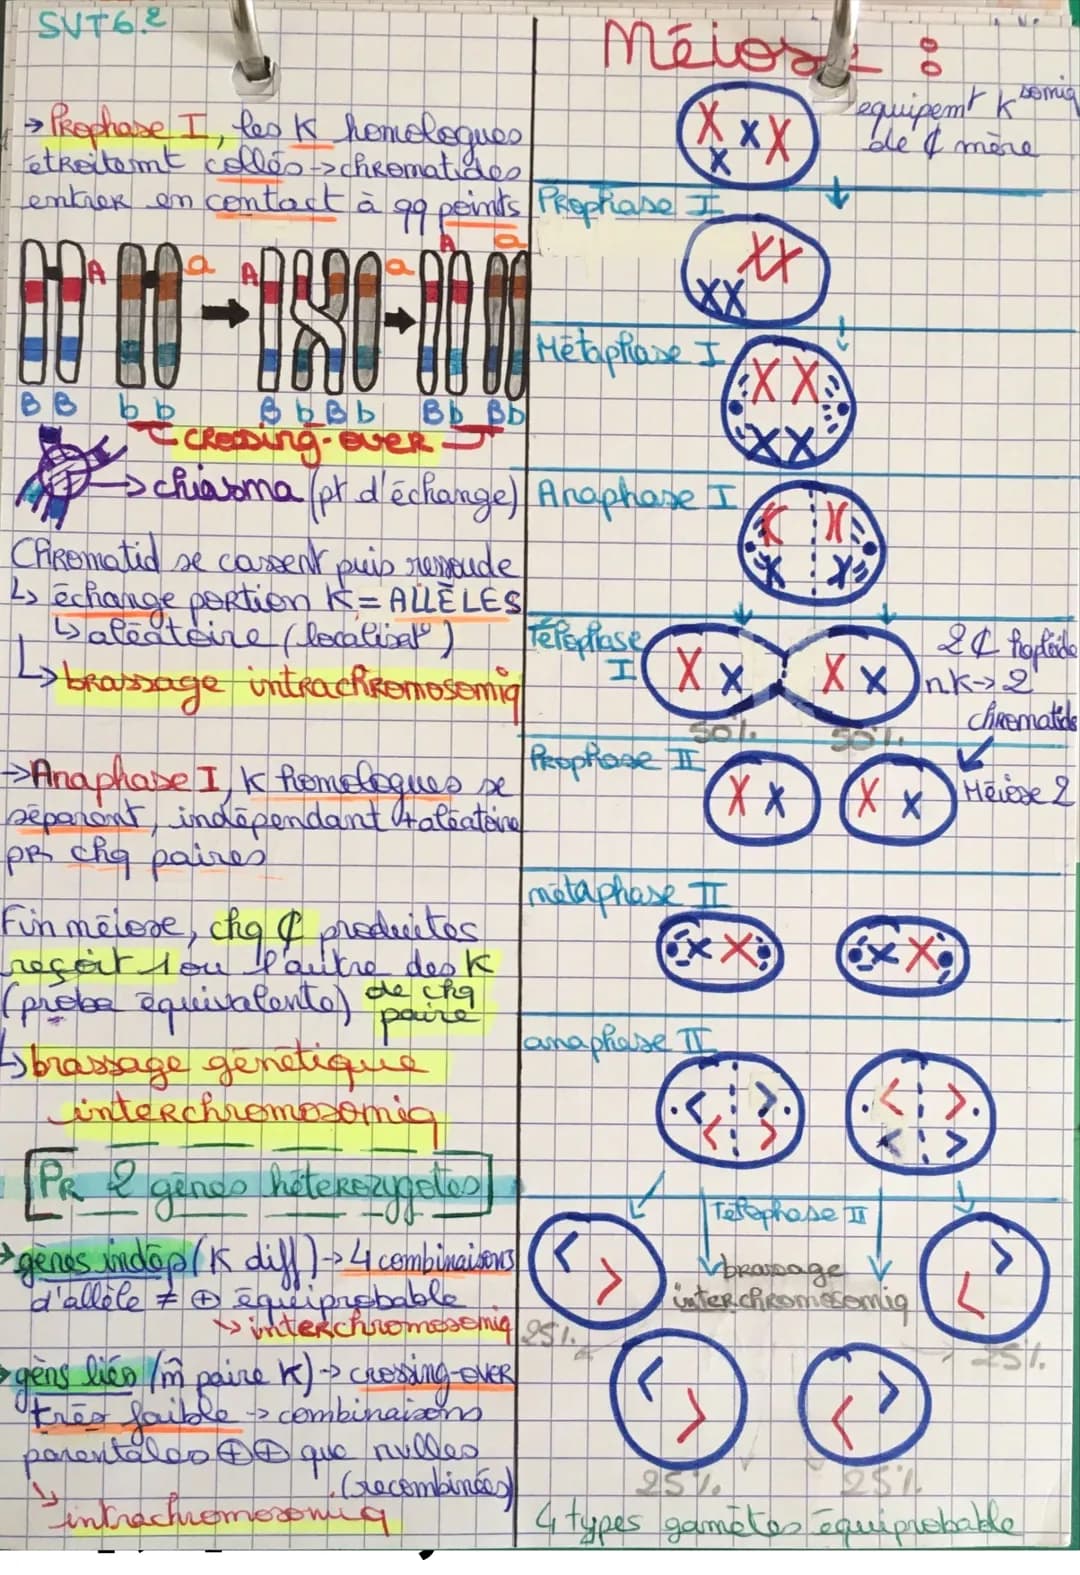 SVT6.2
→ Prophase I, les K homologues
étroitemt collés → chromatides
entrer en contact à qq points
A a A a A a
B B b b B b B b B b B b
crossing-over
→ chiasma (pt d'échange)
Chromatid se cassent puis ressoude
↳ échange portion K = ALLÈLES
↳ aléatoire (localisat°)
↳ brassage intrachromosomiq
→ Anaphase I, K homologues se
séparent, indépendant + aléatoire
pR chq paires
Fin méiose, chq ₵ produites
reçoit 1 ou l'autre des K
(proba équivalente) de chq
paire
↳ brassage génétique
interchromosomiq
[PR 2 gènes hétérozygotes]
→ gènes indép (K diff) → 4 combinaisons
d'allèle ≠ ⊕ équiprobable
↳ interchromosomiq
→ gèns liés (m̄ paire K) → crossing-over
très faible → combinaisons
parentales ⊕⊕ que nulles
(recombinées)
↘ intrachromosomiq
Méiose :
equipemt K somiq
de ₵ mère
Prophase I
Métaphase I
Anaphase I
Télophase
I
2 ₵ haploïde
n.K → 2
chromatids
50%. 50%.
Prophase II
Méiose 2
métaphase II
anaphase II
Télophase II
brassage
interchromosomiq
25%.
25%.
25%. 25%.
4 types gamètes équiprobable